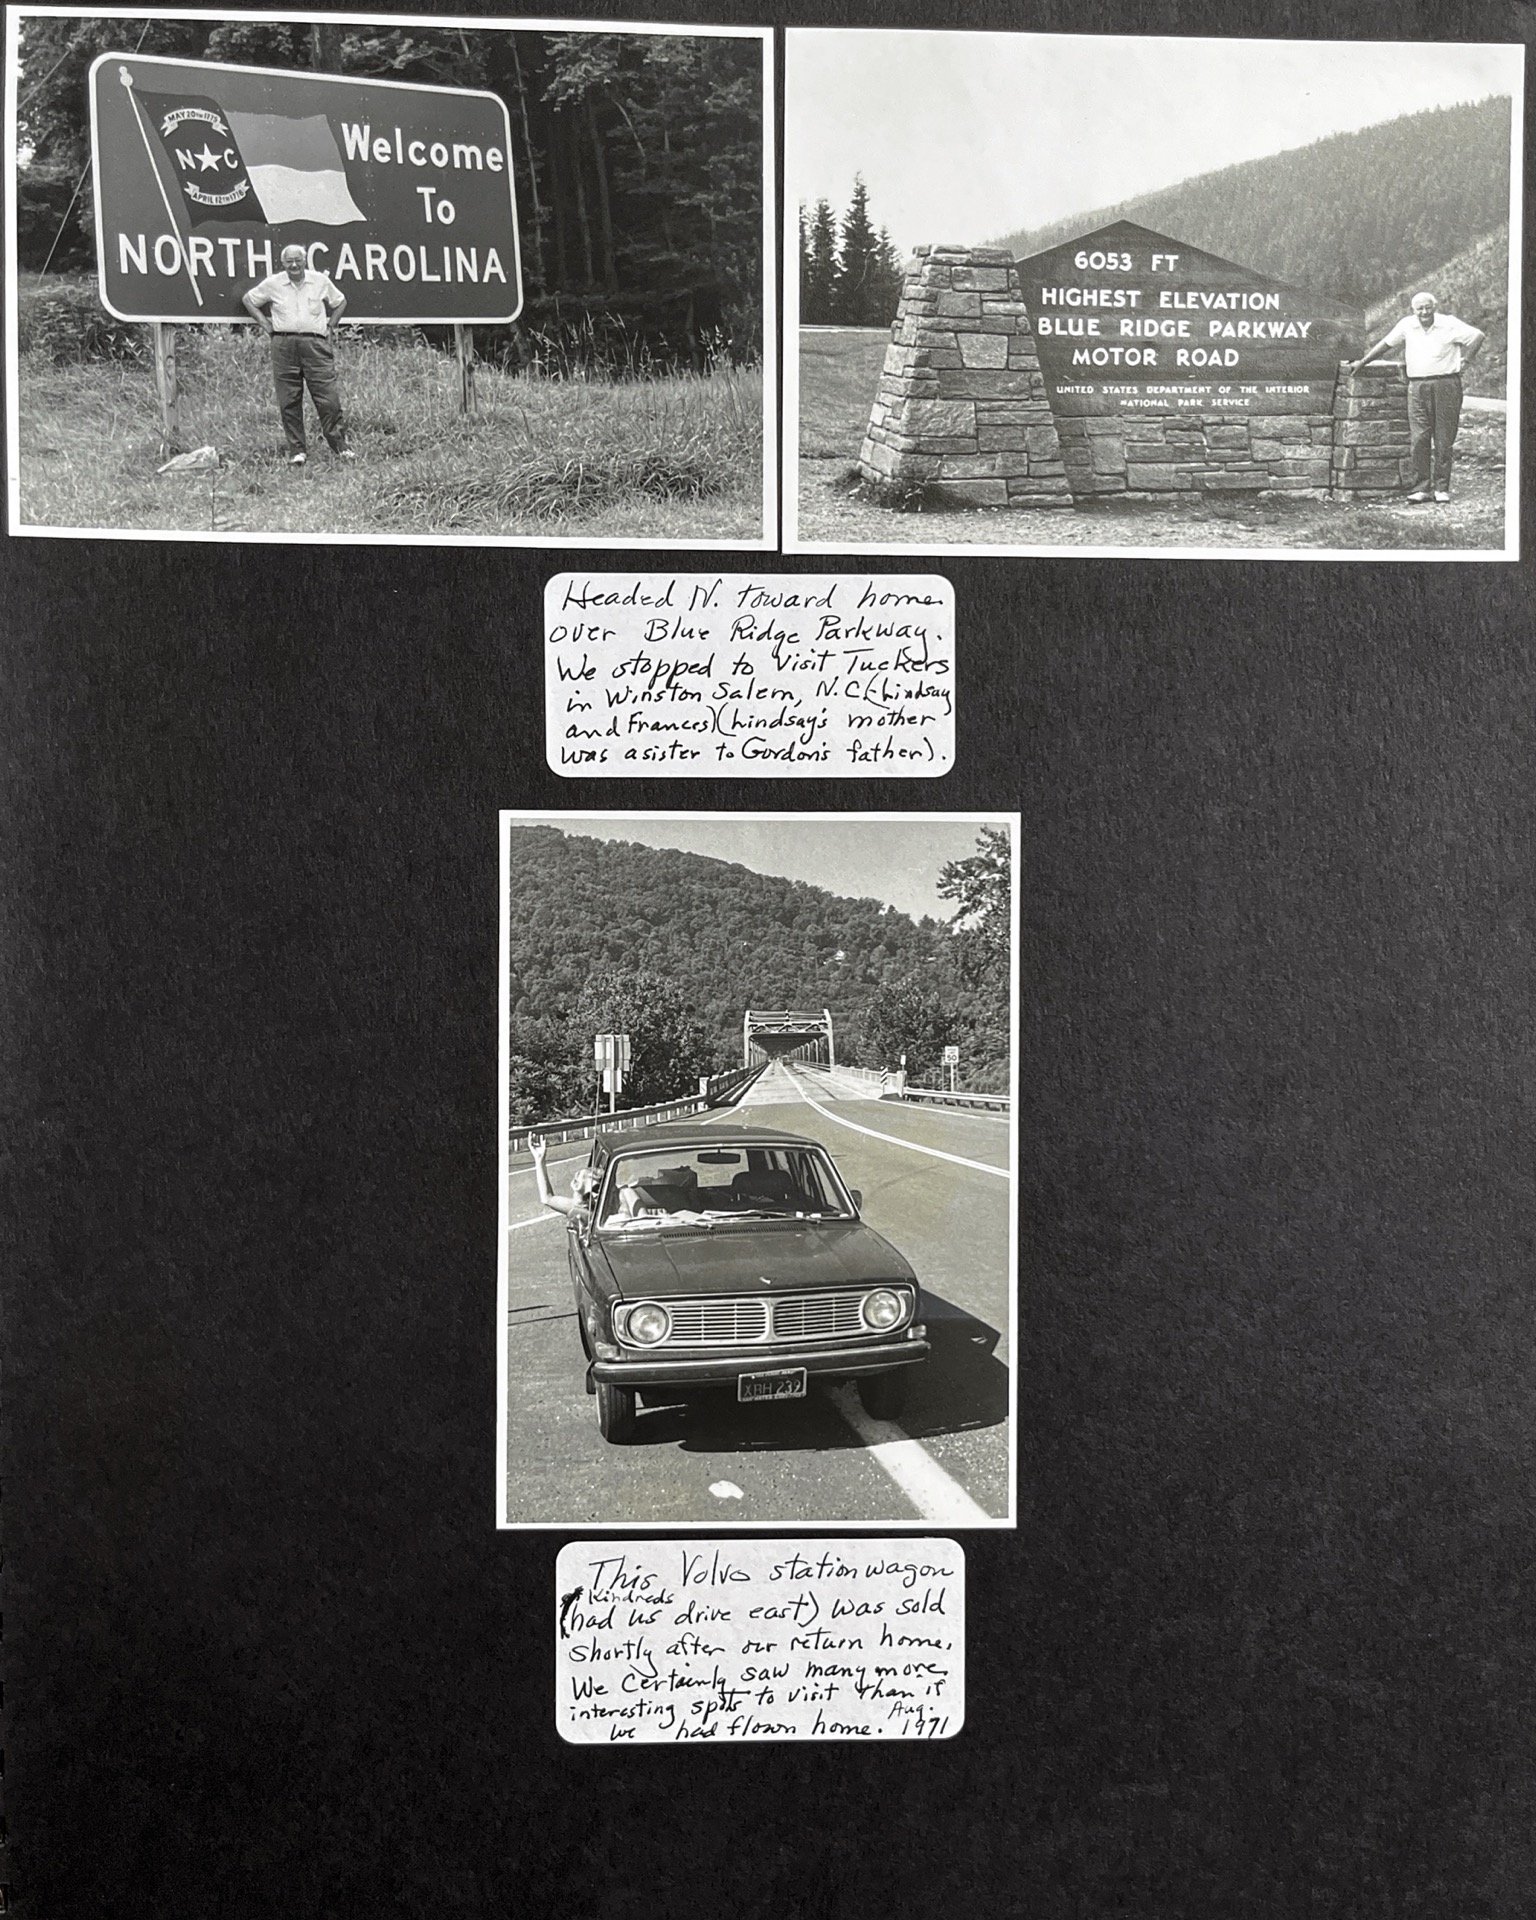 MAY 20TH 1775
N C
APRIL 12TH 1776
Welcome
To
NORTH CAROLINA
6053 FT
HIGHEST ELEVATION
BLUE RIDGE PARKWAY
MOTOR ROAD
UNITED STATES DEPARTMENT OF THE INTERIOR
NATIONAL PARK SERVICE
Headed N. toward home
over Blue Ridge Parkway.
We stopped to visit Tuckers
in Winston Salem, N.C. (Lindsay
and Frances) (Lindsay's mother
was a sister to Gordon's father).
50
XBH 239
This Volvo station wagon
Kindreds
(had us drive east) was sold
shortly after our return home.
We certainly saw many more
interesting spots to visit than if
we had flown home. Aug.
1971